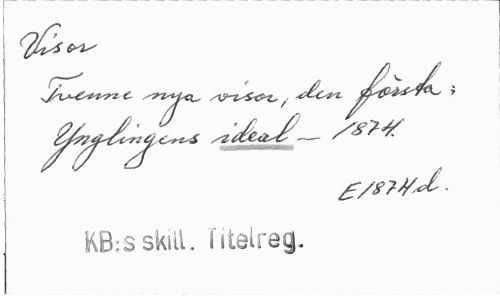 Visor
Tvenne nya visor, den första:
Ynglingens ideal — 1874.
E1874d.
KB:s skill. Titelreg.